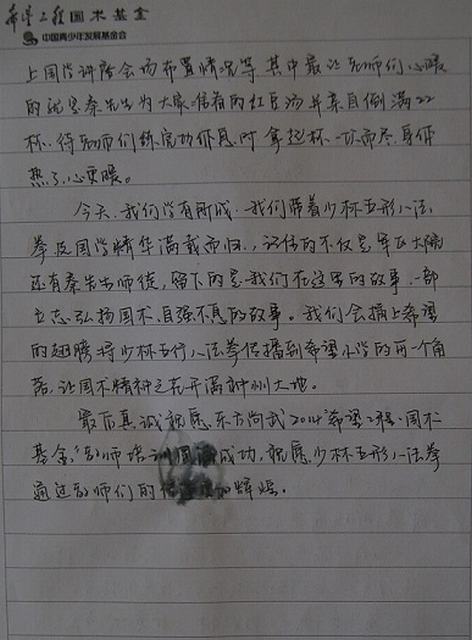 希望工程国术基金
中国青少年发展基金会
上国学讲座会场布置情况等。其中最让老师们心暖
的就是秦先生为大家准备的红豆汤并亲自倒满22
杯,待老师们练完功休息时拿起杯一饮而尽,身体
热了,心更暖。
今天,我们学有所成,我们带着少林五形八法
拳及国学精华满载而归,记住的不仅是军区大院
还有秦先生师徒,留下的是我们在这里的故事,一部
立志弘扬国术、自强不息的故事。我们会插上希望
的翅膀将少林五行八法拳传播到希望小学的每一个角
落,让国术精神之花开满神州大地。
最后真诚祝愿东方尚武2014"希望工程·国术
基金"教师培训圆满成功,祝愿少林五形八法拳
通过教师们的传 辉煌。